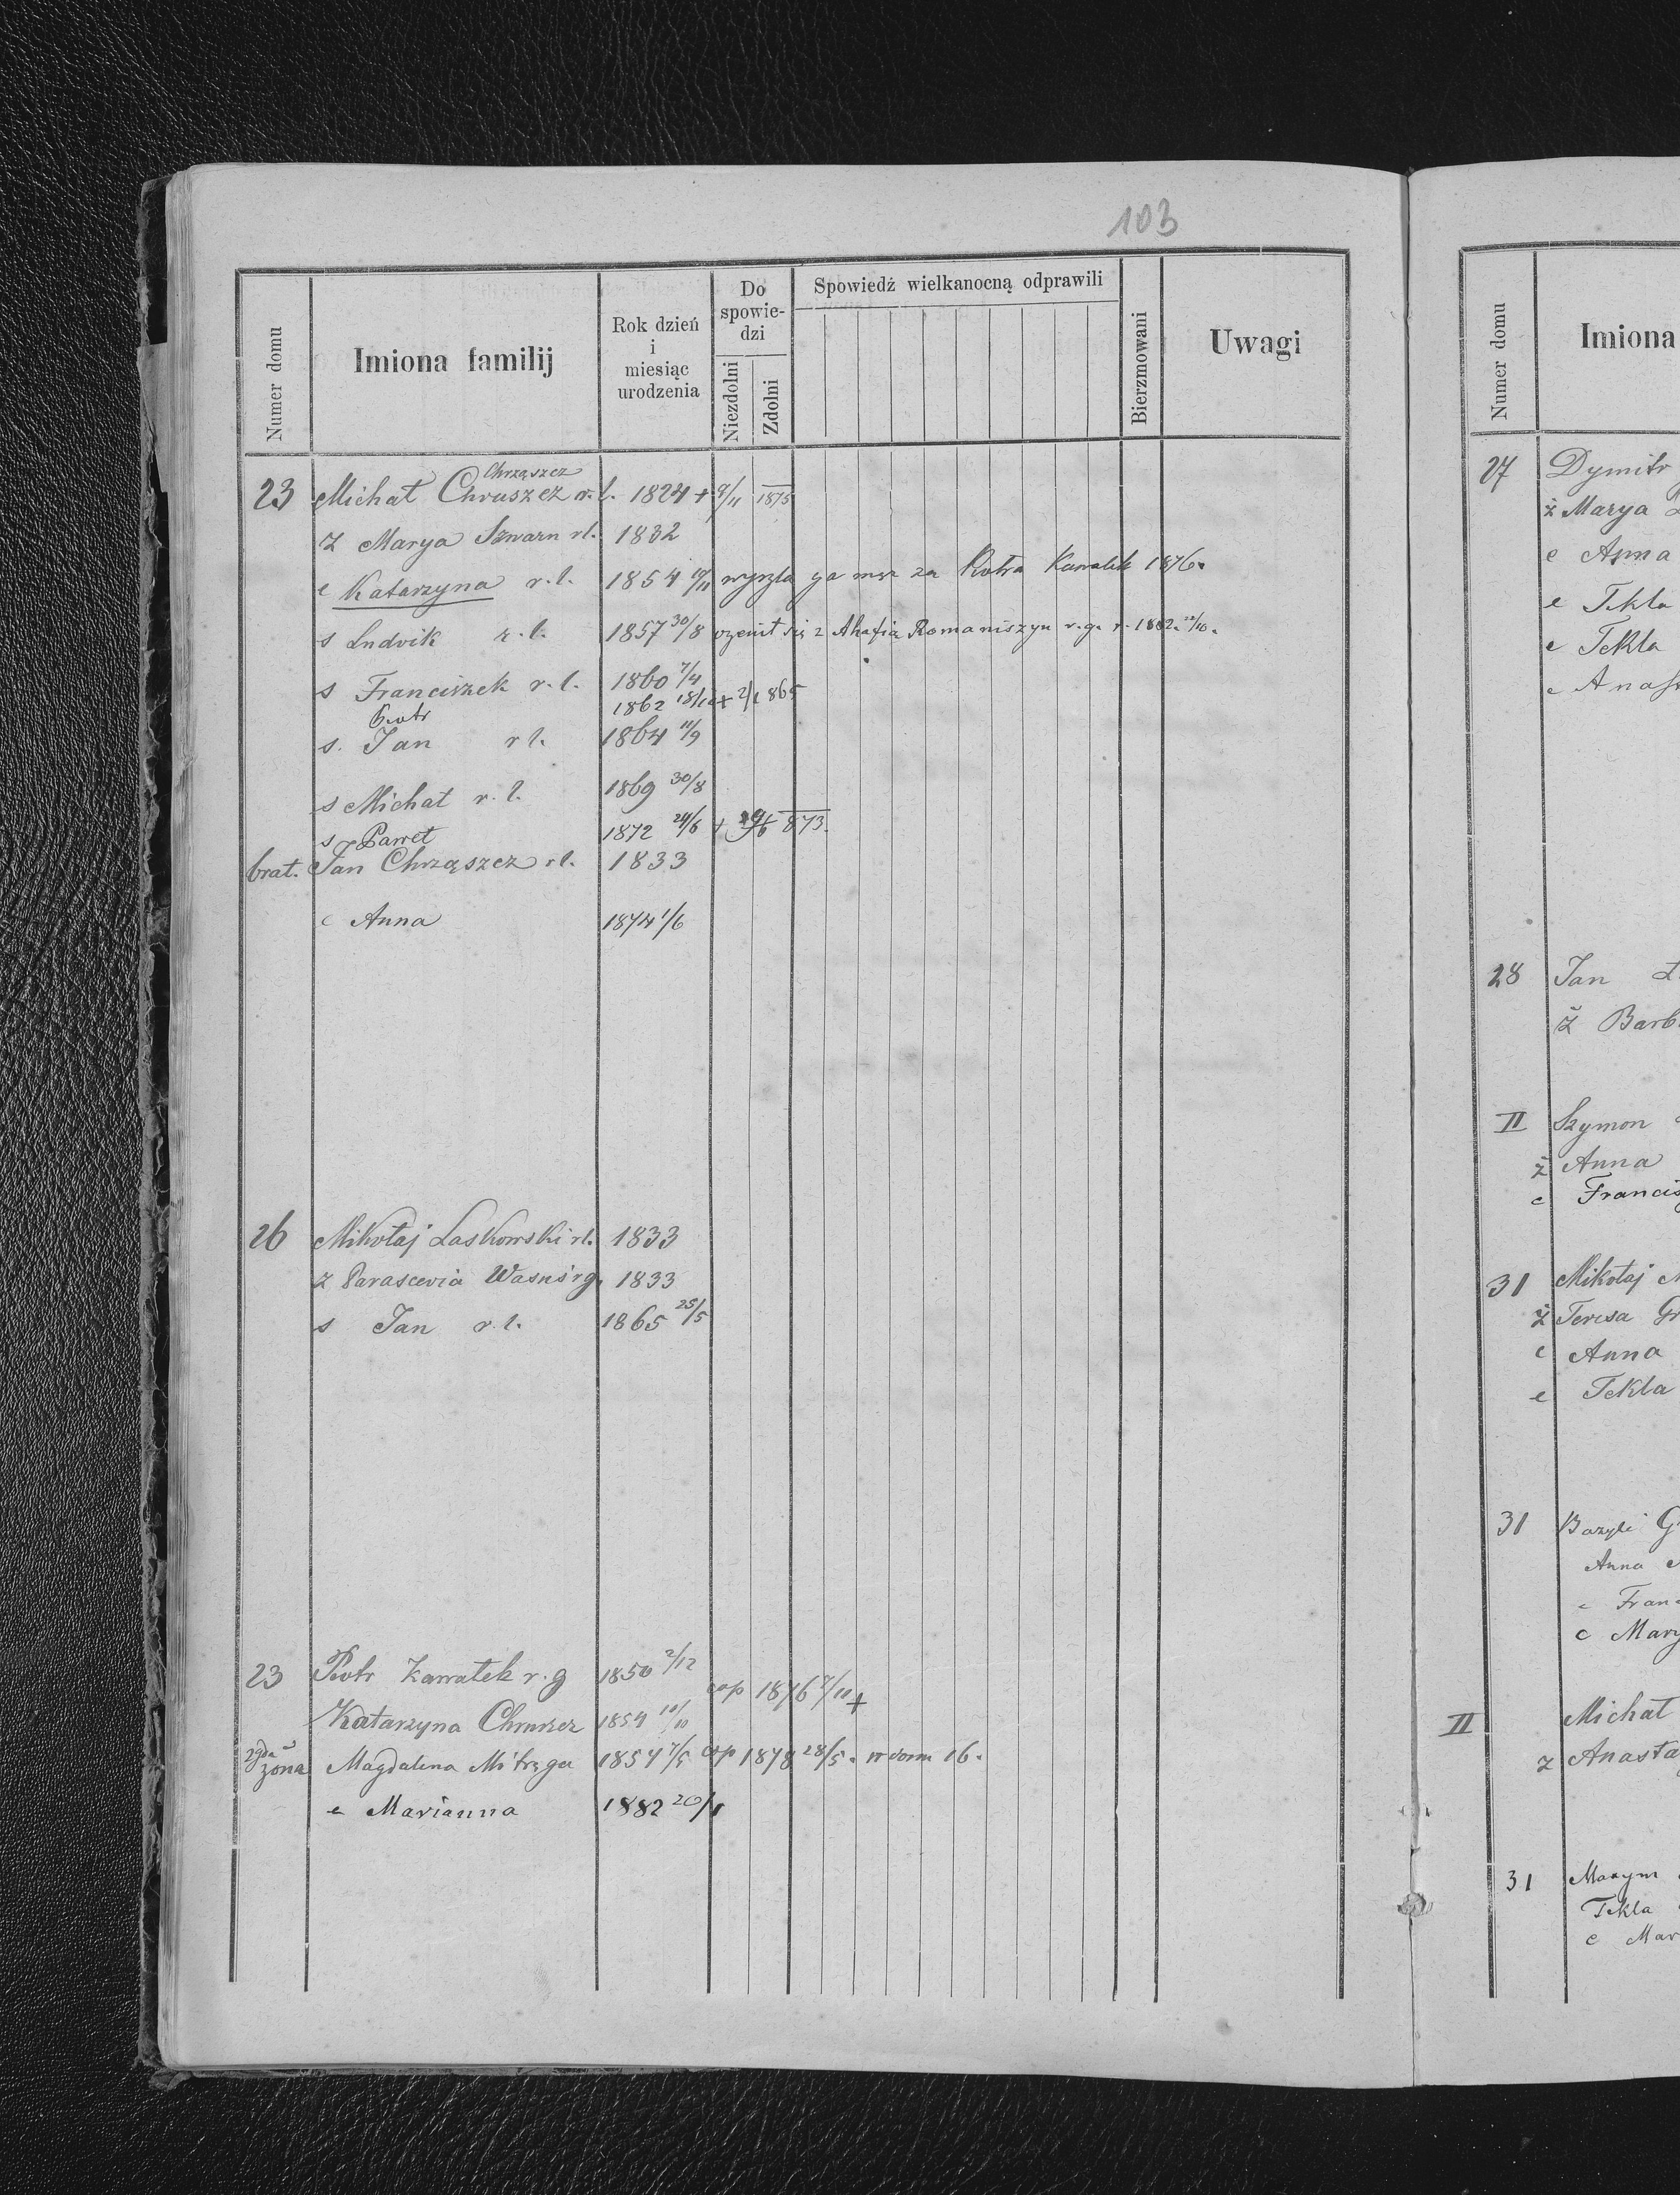 103
Numer domu
Imiona familij
Rok dzień
i
miesiąc
urodzenia
Do
spowie-
dzi
Niezdolni
Zdolni
Spowiedź wielkanocną odprawili
Bierzmowani
Uwagi
Chrząszcz
23 Michał Chruszcz r. l. 1824 + 9/11 1875
ż Marya Szwarn rl. 1832
c Katarzyna r. l. 1854 wyszła za mąż za Piotra Kawałek 1876.
s Ludvik r. l. 1857 30/8 ożenił się z Ahafia Romaniszyn r. g. r. 1882.
s Franciszek r. l. 1860 7/4
Piotr 1862 + 865
s. Jan r l. 1864 11/9
s Michał r. l. 1869 30/8
s Paweł 1872 24/6 + 873.
brat. Jan Chrząszcz rl. 1833
c Anna 1874 1/6
26 Mikołaj Laskowski rl. 1833
ż Parascevia r g. 1833
s Jan r. l. 1865 25/5
23 Piotr Kawałek r. g 1850 2/12
cop 1876 +
Katarzyna Chruszcz 1854 10/10
żona Magdalena Mitręga 1854 7/5 cop 1878 28/5. w domu 16.
c Marianna 1882 20/1
Numer domu
Imiona
27 Dymitr
ż Marya
c Anna
c Tekla
c Tekla
28 Jan
ż Barb
II Szymon
ż Anna
c Francis
31 Mikołaj
ż Teresa Gr
c Anna
c Tekla
31 Bazyli G
Anna
c Fran
c Mary
II Michał
ż Anasta
31 Maxym
Tekla
c Mar